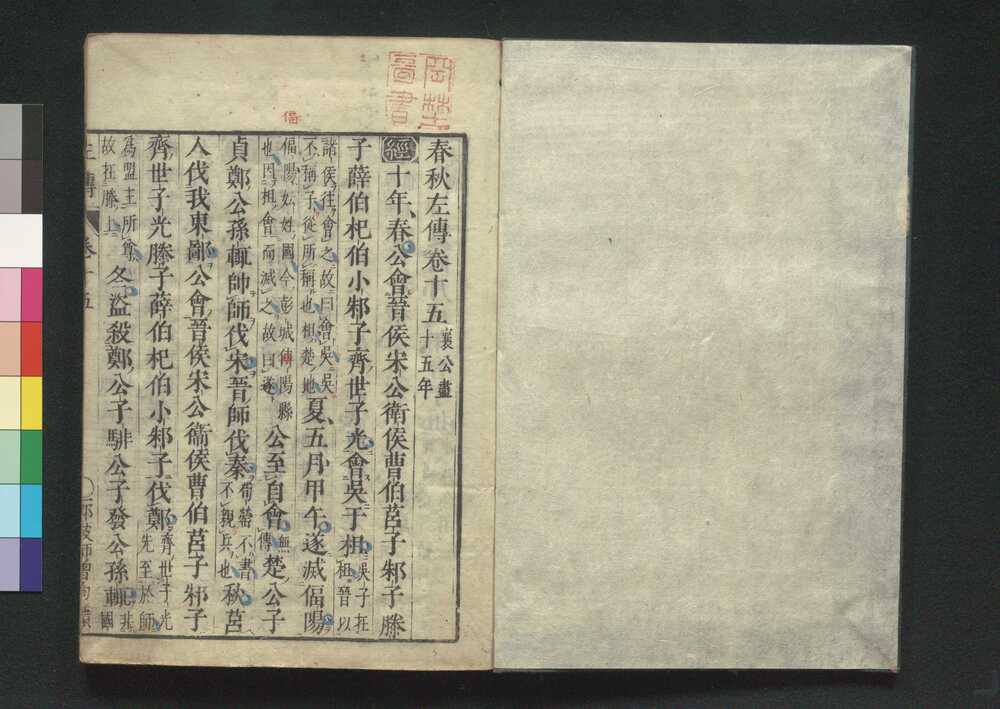 春秋左傳卷十五 襄公盡十五年
經十年春公會晉侯宋公衛侯曹伯莒子邾子滕
子薛伯杞伯小邾子齊世子光會吳于柤 吳子在柤晉以
諸侯往會之故曰會吳吳不稱子從所稱也柤楚地 夏五月甲午遂滅偪陽
偪陽妘姓國今彭城傅陽縣也因柤會而滅之故曰遂 公至自會 無傳 楚公子
貞鄭公孫輒帥師伐宋晉師伐秦 荀罃不書不親兵也 秋莒
人伐我東鄙公會晉侯宋公衛侯曹伯莒子邾子
齊世子光滕子薛伯杞伯小邾子伐鄭 齊世子光先至於師
爲盟主所尊故在滕上 冬盜殺鄭公子騑公子發公孫輒 非國
偪
圖書